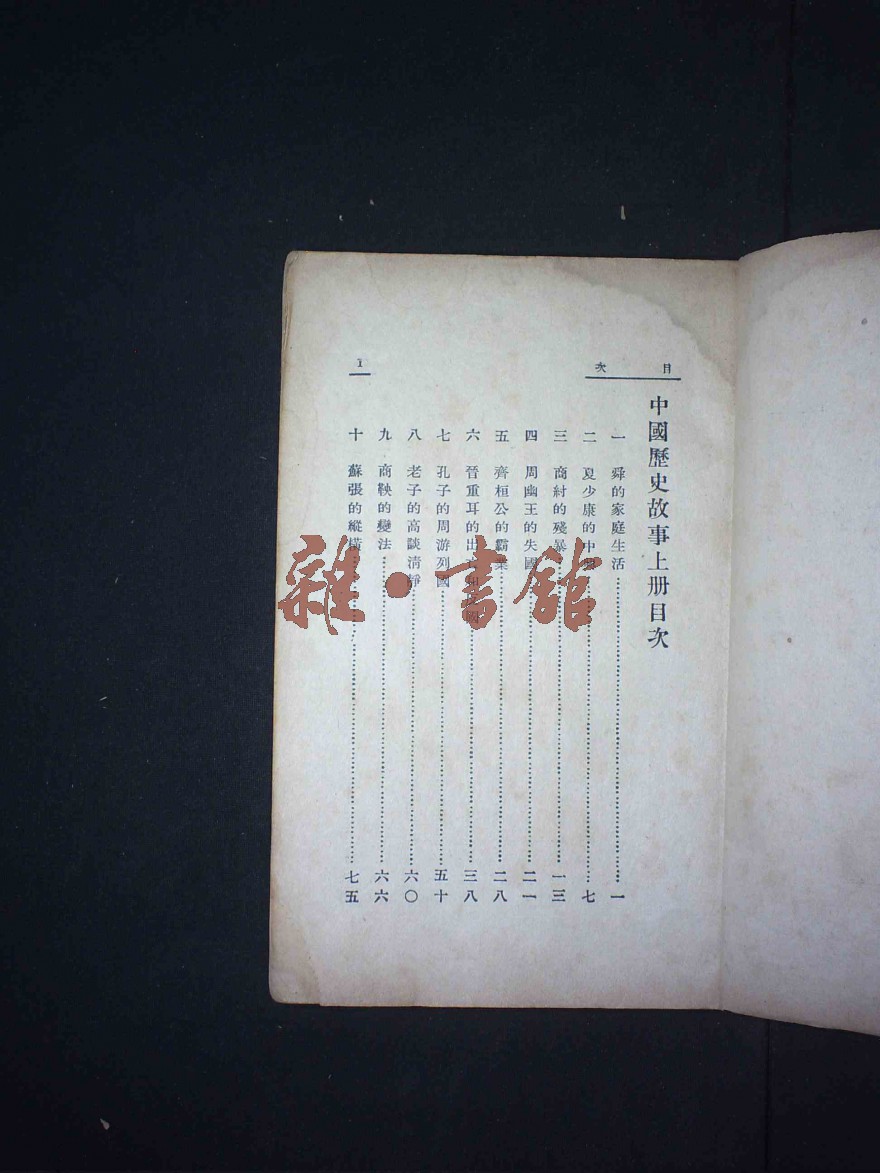 目次
中國歷史故事上册目次
一 舜的家庭生活……一
二 夏少康的中……七
三 商紂的殘暴……一三
四 周幽王的失國……二一
五 齊桓公的霸業……二八
六 晉重耳的出……國……三八
七 孔子的周游列國……五十
八 老子的高談清靜……六〇
九 商鞅的變法……六六
十 蘇張的縱橫……七五
1
雜·書館